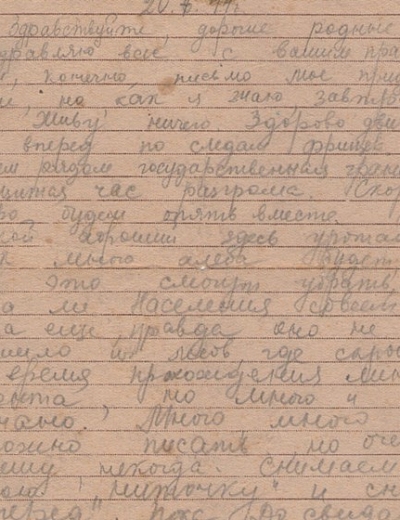 20.7.44г.
Здравствуйте, дорогие родные
здравляю всех с вашим пра
, конечно письмо мое при
но как я знаю, завтра
Живу ничего. Здорово дви
вперед по следам фрицев
ем рядом государственная грани
час разгрома. Скор
ро будем опять вместе.
кой хороший здесь урожай
много хлеба. Будет
это смогут убрать
а ли Населения совсем
а еще, правда оно не
из лесов, где скры
время прохождения лин
но много и
чаю. Много, много
ожно писать, но оче
некогда. Снимаем
"ниточку" и сн
перед". Пока. До свида